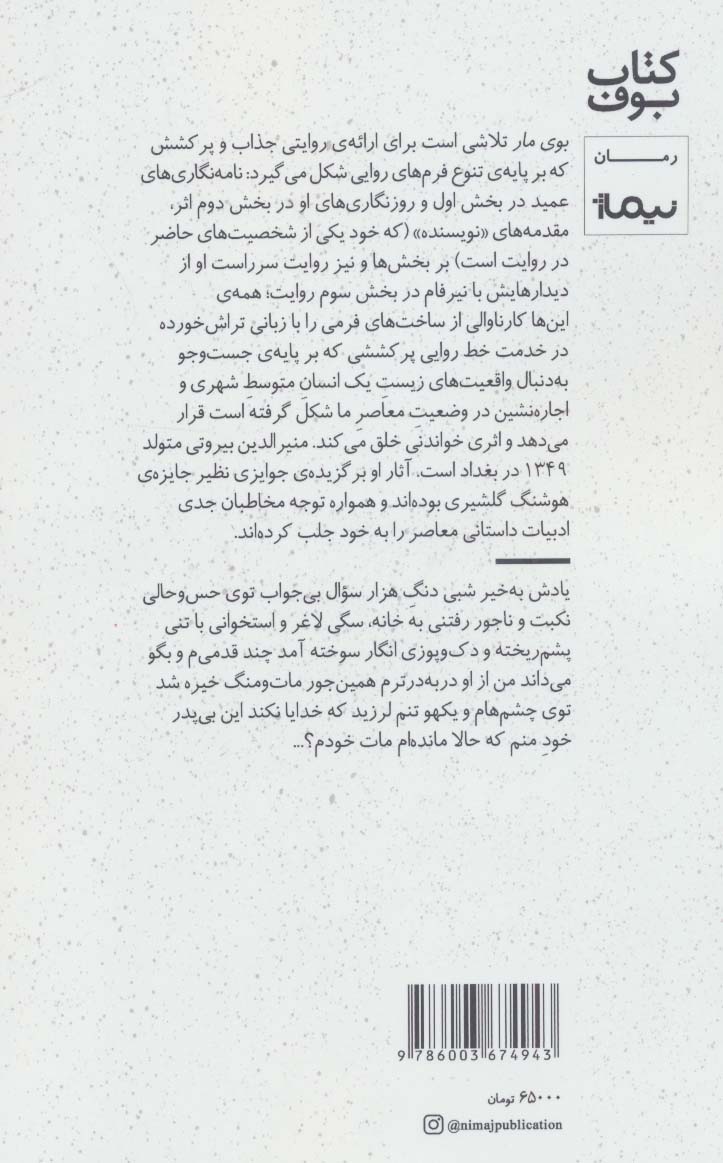 کتاب
بوف
رمـــان
نیماژ
بوی مار تلاشی است برای ارائه‌ی روایتی جذاب و پرکشش
که بر پایه‌ی تنوع فرم‌های روایی شکل می‌گیرد: نامه‌نگاری‌های
عمید در بخش اول و روزنگاری‌های او در بخش دوم اثر،
مقدمه‌های «نویسنده» (که خود یکی از شخصیت‌های حاضر
در روایت است) بر بخش‌ها و نیز روایت سرراست او از
دیدارهایش با نیرفام در بخش سوم روایت؛ همه‌ی
این‌ها کارناوالی از ساخت‌های فرمی را با زبانی تراش‌خورده
در خدمت خط روایی پرکششی که بر پایه‌ی جست‌وجو
به‌دنبال واقعیت‌های زیستِ یک انسانِ متوسطِ شهری و
اجاره‌نشین در وضعیتِ معاصرِ ما شکل گرفته است قرار
می‌دهد و اثری خواندنی خلق می‌کند. منیرالدین بیروتی متولد
۱۳۴۹ در بغداد است. آثار او برگزیده‌ی جوایزی نظیر جایزه‌ی
هوشنگ گلشیری بوده‌اند و همواره توجه مخاطبان جدی
ادبیات داستانی معاصر را به خود جلب کرده‌اند.
یادش به‌خیر شبی دنگِ هزار سؤال بی‌جواب توی حس‌وحالی
نکبت و ناجور رفتنی به خانه، سگی لاغر و استخوانی با تنی
پشم‌ریخته و دک‌وپوزی انگار سوخته آمد چند قدمی‌م و بگو
می‌داند من از او دربه‌درترم همین‌جور مات‌ومنگ خیره شد
توی چشم‌هام و یکهو تنم لرزید که خدایا نکند این بی‌پدر
خودِ منم که حالا مانده‌ام مات خودم؟...
9 786003 674943
۶۵۰۰۰ تومان
@nimajpublication